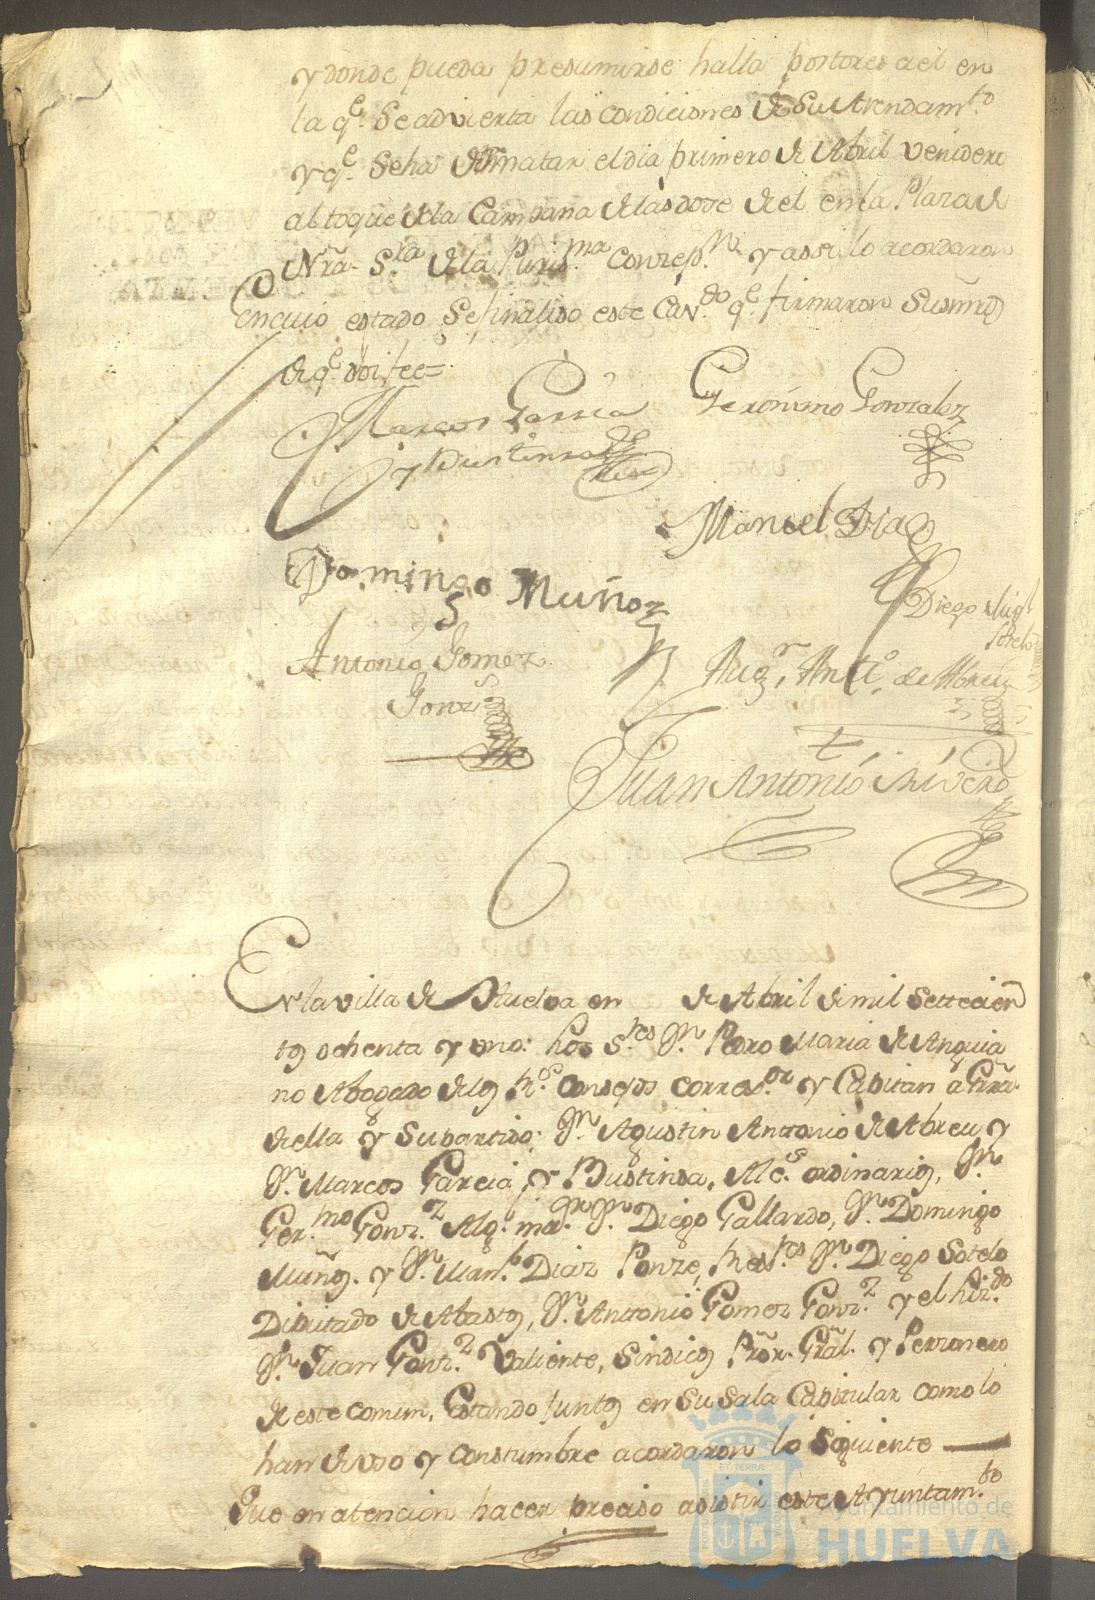 y donde pueda presumirse halla postores a el en
la qe. se advierta las condiciones de su Arrendamto
y qe. se ha de rematar el dia primero de Abril venidero
al toque de la Campana de las dose de el en la Plaza de
Nrã. Sra. de la Puris.ma Conzepn. y assi lo acordaron
En cuio estado se finaliso este Cav.do qe. firmaron sus mds
de qe. doi fee=
Marcos Garcia
y Bustinsa
Geronimo Gonzalez
Manuel Diaz
Domingo Muñoz
Diego
Sotelo
Antonio Gomez
Gonz.s
Aug.n Ant.o de Abreu
Juan Antonio Rivero
En la villa de Huelva en de Abril de mil settecien
tos ochenta y uno: los S.res Dn. Pedro Maria de Anguia
no Abogado de los Rs. Consejos Correg.or y Capitan a Grrã.
de ella y su partido; Dn. Agustin Antonio de Abreu y
Dn. Marcos Garcia y Bustinsa, Alc.s ordinarios, Dn.
Ger.mo Gonz.z Alg.l mor. Dn. Diego Gallardo, Dn. Domingo
Muños. y Dn. Man.l Diaz Ponze, Dn. Diego Sotelo
Diputado de Abastos, Dn. Antonio Gomez Gonz.z y el
Dn. Juan Gonz.z Valiente, Sindicos Prõr. Grãl. y Perzonero
de este comun, Estando juntos en su sala Capitular como lo
han de uso y constumbre acordaron lo siguiente
Que en atencion hacer preciso asistir este Ayuntam.to
Ayuntamiento de
HUELVA